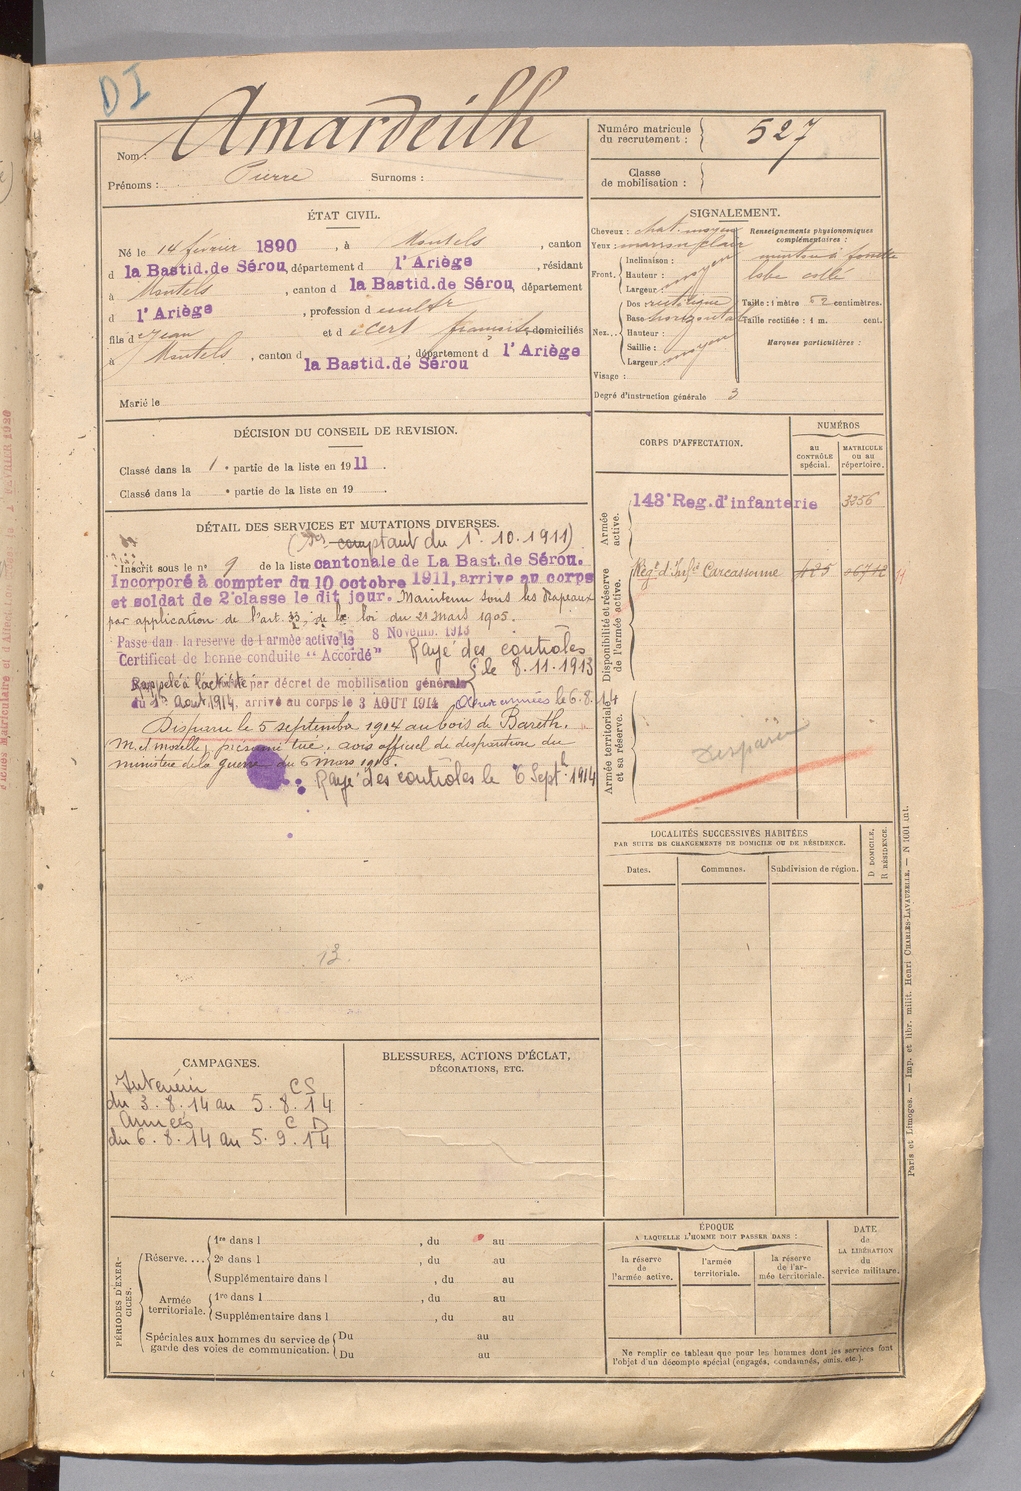 DI
Nom : Amardeilh
Prénoms : Pierre Surnoms :
Numéro matricule du recrutement : 527
Classe de mobilisation :
ÉTAT CIVIL.
Né le 14 février 1890, à Montels, canton
d la Bastid. de Sérou, département d l'Ariège, résidant
à Montels, canton d la Bastid. de Sérou, département
d l'Ariège, profession d
fils d Jean et d domiciliés
à Montels, canton d la Bastid. de Sérou, département d l'Ariège
Marié le
SIGNALEMENT.
Cheveux : chat. moyen
Yeux : marron clair
Front. Inclinaison :
Hauteur : moyen
Largeur :
Nez... Dos : rectiligne
Base horizontal
Hauteur :
Saillie :
Largeur moyen
Visage :
Renseignements physionomiques complémentaires :
menton à fossette
lobe collé
Taille : 1 mètre 52 centimètres.
Taille rectifiée : 1 m. cent.
Marques particulières :
Degré d'instruction générale 3
DÉCISION DU CONSEIL DE REVISION.
Classé dans la 1e partie de la liste en 1911.
Classé dans la e partie de la liste en 19
CORPS D'AFFECTATION.
NUMÉROS
au contrôle spécial.
MATRICULE ou au répertoire.
Armée active.
143e Reg. d'infanterie 3356
Disponibilité et réserve de l'armée active.
Régt d'Infie Carcassonne
Armée territoriale et sa réserve.
Disparu
DÉTAIL DES SERVICES ET MUTATIONS DIVERSES.
comptant du 1r. 10. 1911)
Inscrit sous le n° 9 de la liste cantonale de La Bast. de Sérou.
Incorporé à compter du 10 octobre 1911, arrive au corps
et soldat de 2e classe le dit jour. Maintenu sous les drapeaux
par application de l'art. 33 de la loi du 21 mars 1905.
Passe dan la reserve de l'armée active le 8 Novemb. 1913
Certificat de bonne conduite "Accordé" Rayé des contrôles
le 8.11.1913
Rappelé à l'activité par décret de mobilisation générale
du 1er Aout 1914, arrivé au corps le 3 AOUT 1914 Aux armées le 6.8.14
Disparu le 5 septembre 1914 au bois de Bareth.
M. et moselle, présumé tué, avis officiel de disparition du
ministère de la guerre du 6 mars 1916.
Rayé des contrôles le 6 Sept. 1914
13
LOCALITÉS SUCCESSIVES HABITÉES
PAR SUITE DE CHANGEMENTS DE DOMICILE OU DE RÉSIDENCE.
Dates. Communes. Subdivision de région.
D DOMICILE, R RÉSIDENCE.
CAMPAGNES.
Intérieur CS
du 3.8.14 au 5.8.14
Armées C D
du 6.8.14 au 5.9.14
BLESSURES, ACTIONS D'ÉCLAT,
DÉCORATIONS, ETC.
PÉRIODES D'EXERCICES.
Réserve.... 1re dans l , du au
2e dans l , du au
Supplémentaire dans l , du au
Armée territoriale. 1re dans l , du au
Supplémentaire dans l , du au
Spéciales aux hommes du service de garde des voies de communication. Du au
Du au
ÉPOQUE
A LAQUELLE L'HOMME DOIT PASSER DANS :
la réserve de l'armée active.
l'armée territoriale.
la réserve de l'armée territoriale.
DATE de LA LIBÉRATION du service militaire.
Ne remplir ce tableau que pour les hommes dont les services font
l'objet d'un décompte spécial (engagés, condamnés, omis, etc.).
Paris et Limoges. — Imp. et libr. milit. Henri CHARLES-LAVAUZELLE. — N 1001 int.